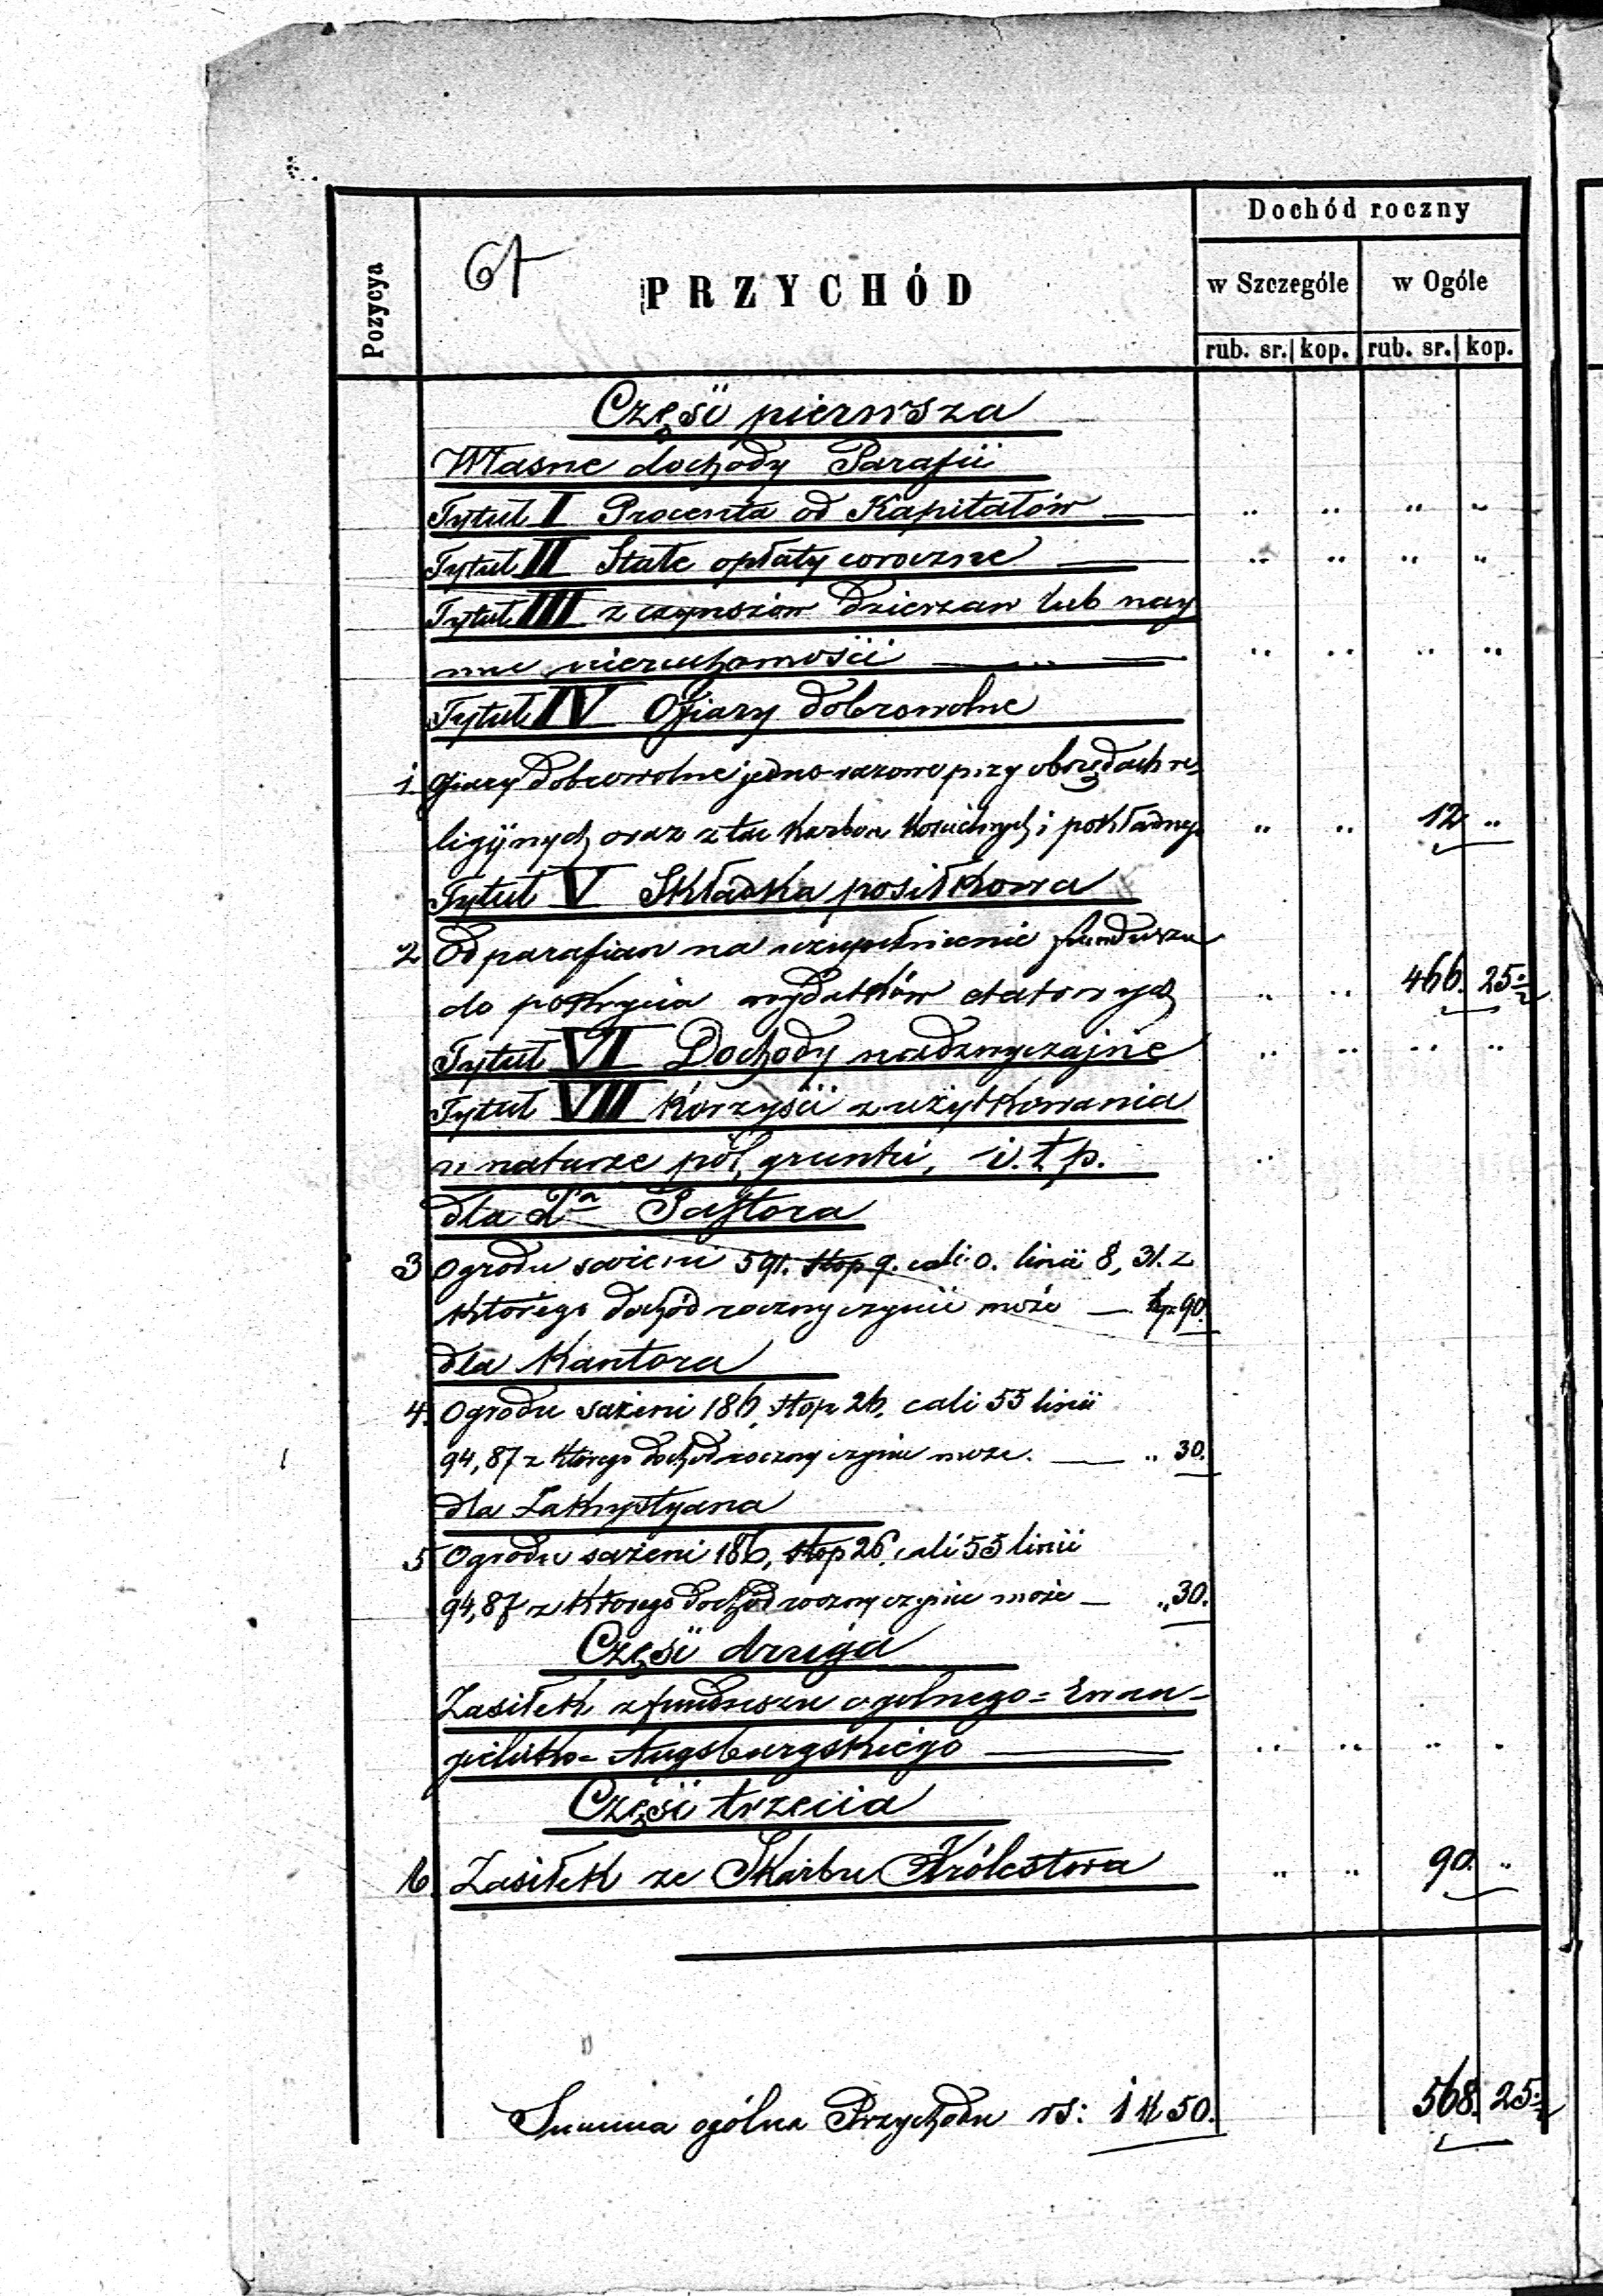 Dochód roczny
Pozycya
PRZYCHÓD
w Szczególe
w Ogóle
rub. sr. kop. rub. sr. kop.
Część pierwsza
Własne dochody Parafii
Tytuł I Procenta od Kapitałów — " " " "
Tytuł II Stałe opłaty coroczne — " " " "
Tytuł III z czynszów dzierzaw lub nay
mu nieruchomości — " " " "
Tytuł IV Ofiary dobrowolne
1. Ofiary dobrowolne jedno-razowe przy obrzędach re
ligijnych oraz z karbon Kościelnych i pokładnego " " 12 "
Tytuł V Składka posiłkowa
2 Od parafian na uzupełnienie funduszu
do pokrycia wydatków etatowych " " 466. 25
Tytuł VI Dochody nadzwyczajne " " " "
Tytuł VII Korzyści z użytkowania
w naturze pól, gruntu, i. t. p. "
dla Pastora
3 Ogrodu sażeni 591. stop 9. cali 0. linii 8, 31. z
którego dochód roczny czynić może — 90.
dla Kantora
4. Ogrodu sażeni 186, stop 26, cali 55 linii
94,87 z którego dochód roczny czynić może. — " 30.
dla Zakrystyana
5 Ogrodu sażeni 186, stop 26, cali 55 linii
94,87 z którego dochód roczny czynić może — " 30.
Część druga
Zasiłek z funduszu ogolnego = Ewan-
gielicko = Augsburgskiego — " " " "
Część trzecia
6. Zasiłek ze Skarbu Królestwa " " 90. "
Summa ogólna Przychodu rs: 1 k 50. 568. 25